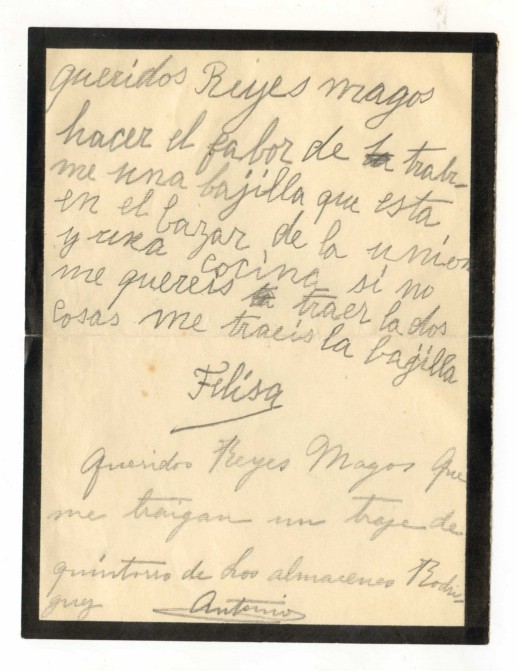 queridos Reyes magos
hacer el fabor de trabr-
me una bajilla que esta
en el bazar de la union
y una cocina si no
me quereis traer la dos
cosas me traeis la bajilla
Felisa
Queridos Reyes Magos que
me traigan un traje de
de los almacenes Rodri-
guez Antonio